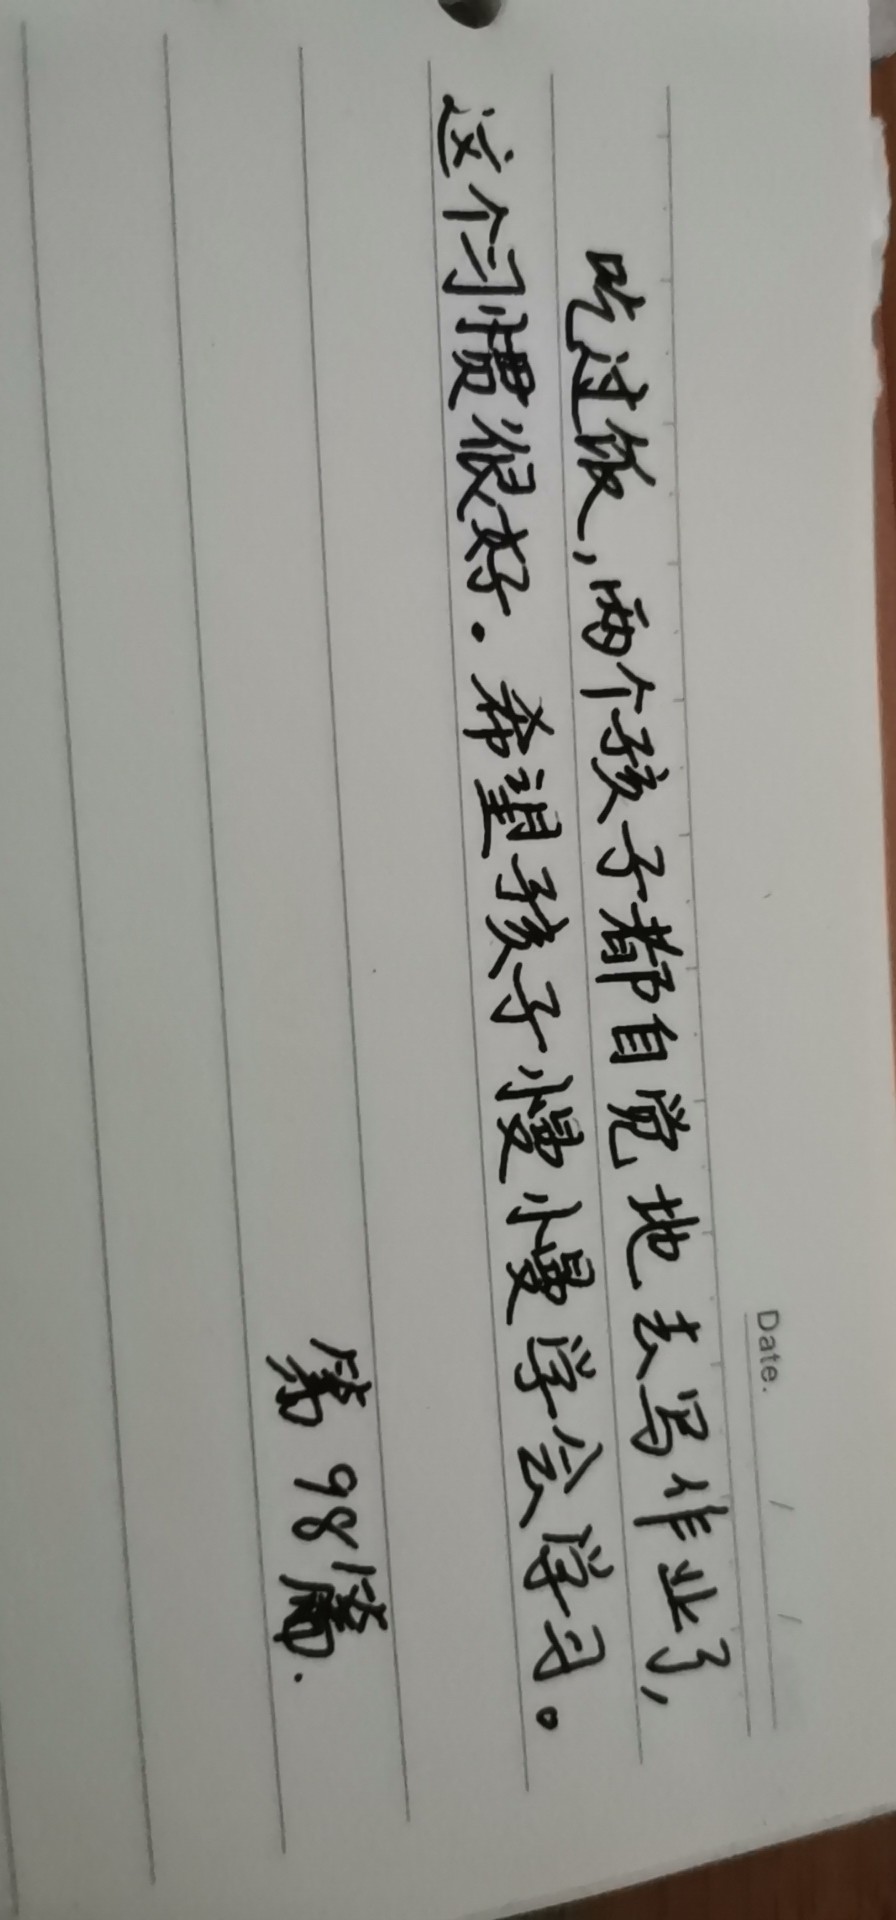 Date. / /
吃过饭，两个孩子都自觉地去写作业了，
这个习惯很好。希望孩子慢慢学会学习。
第98篇.